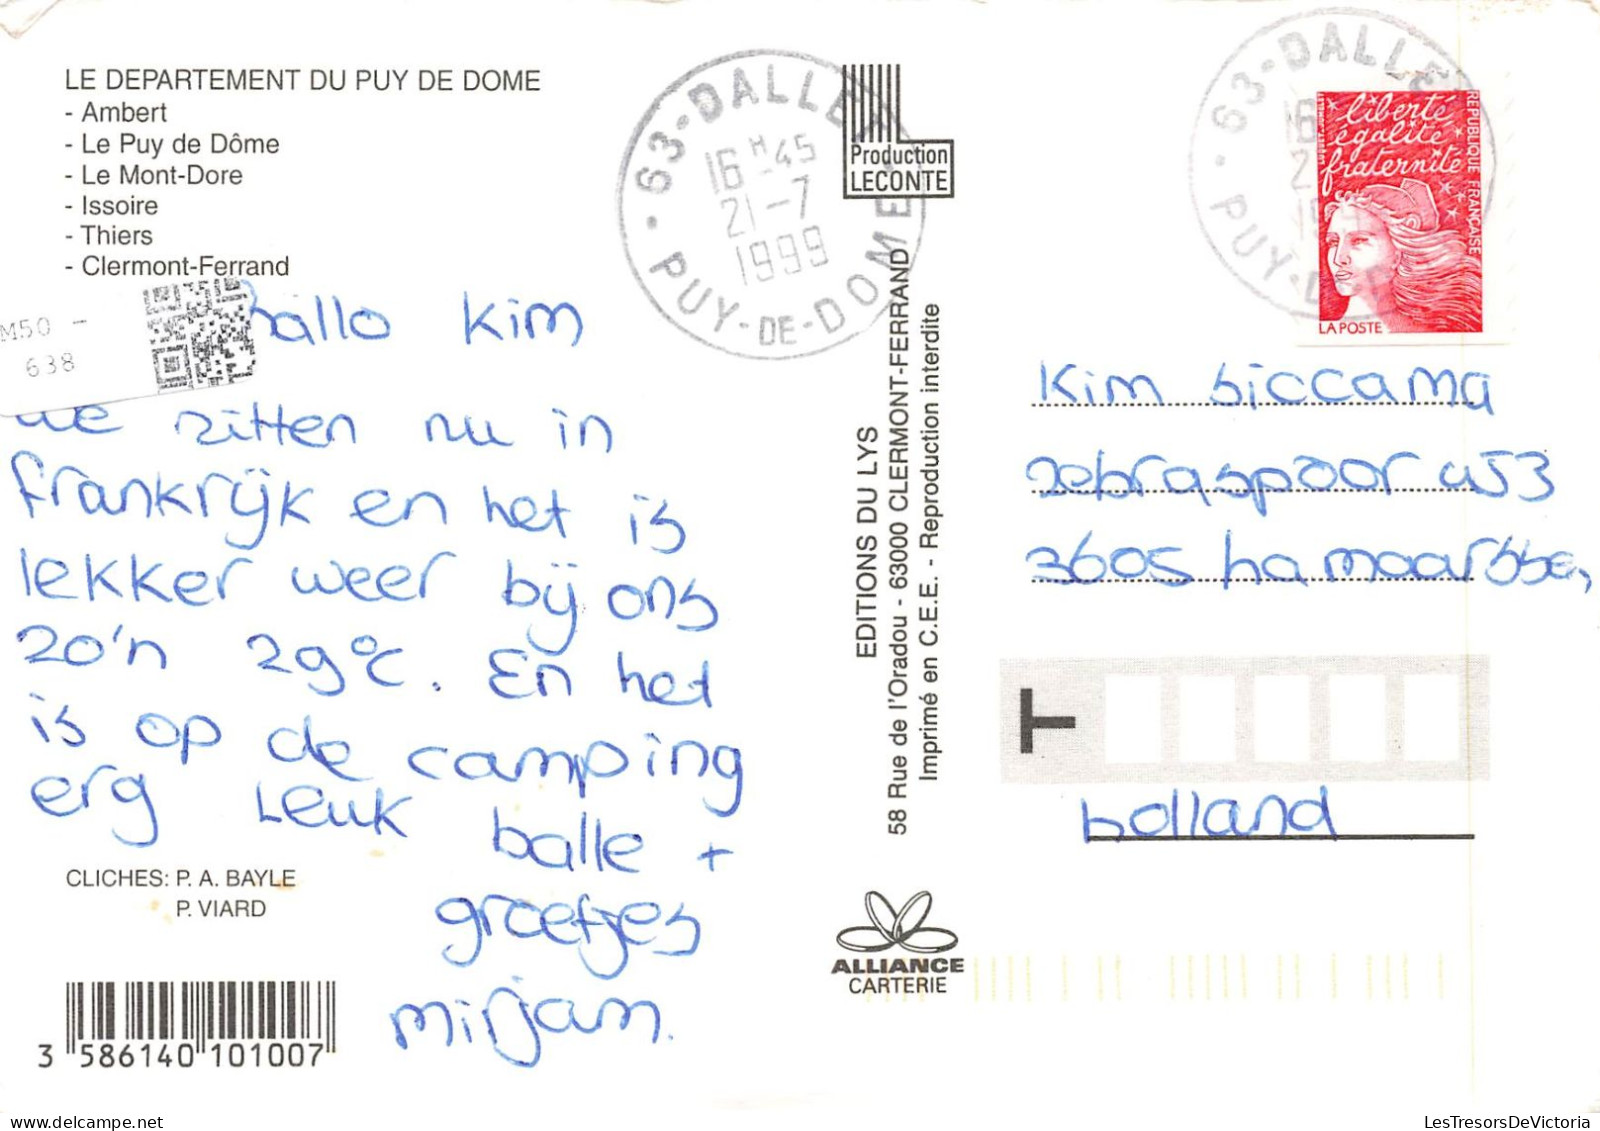 LE DEPARTEMENT DU PUY DE DOME
- Ambert
- Le Puy de Dôme
- Le Mont-Dore
- Issoire
- Thiers
- Clermont-Ferrand
M50 -
638
hallo Kim
we zitten nu in
frankrijk en het is
lekker weer bij ons
zo'n 29°C. En het
is op de camping
erg Leuk
balle +
groetjes
mirjam.
CLICHES: P. A. BAYLE
P. VIARD
3 586140 101007
63-DALLE
16 H 45
21-7
1999
PUY-DE-DOME
Production
LECONTE
EDITIONS DU LYS
58 Rue de l'Oradou - 63000 CLERMONT-FERRAND
Imprimé en C.E.E. - Reproduction interdite
ALLIANCE
CARTERIE
63-DALLE
PUY-D
liberté
égalité
fraternité
REPUBLIQUE FRANÇAISE
LA POSTE
Kim Siccama
zebraspoor 453
3605 ha maarsse,
T
holland
LesTresorsDeVictoria.com